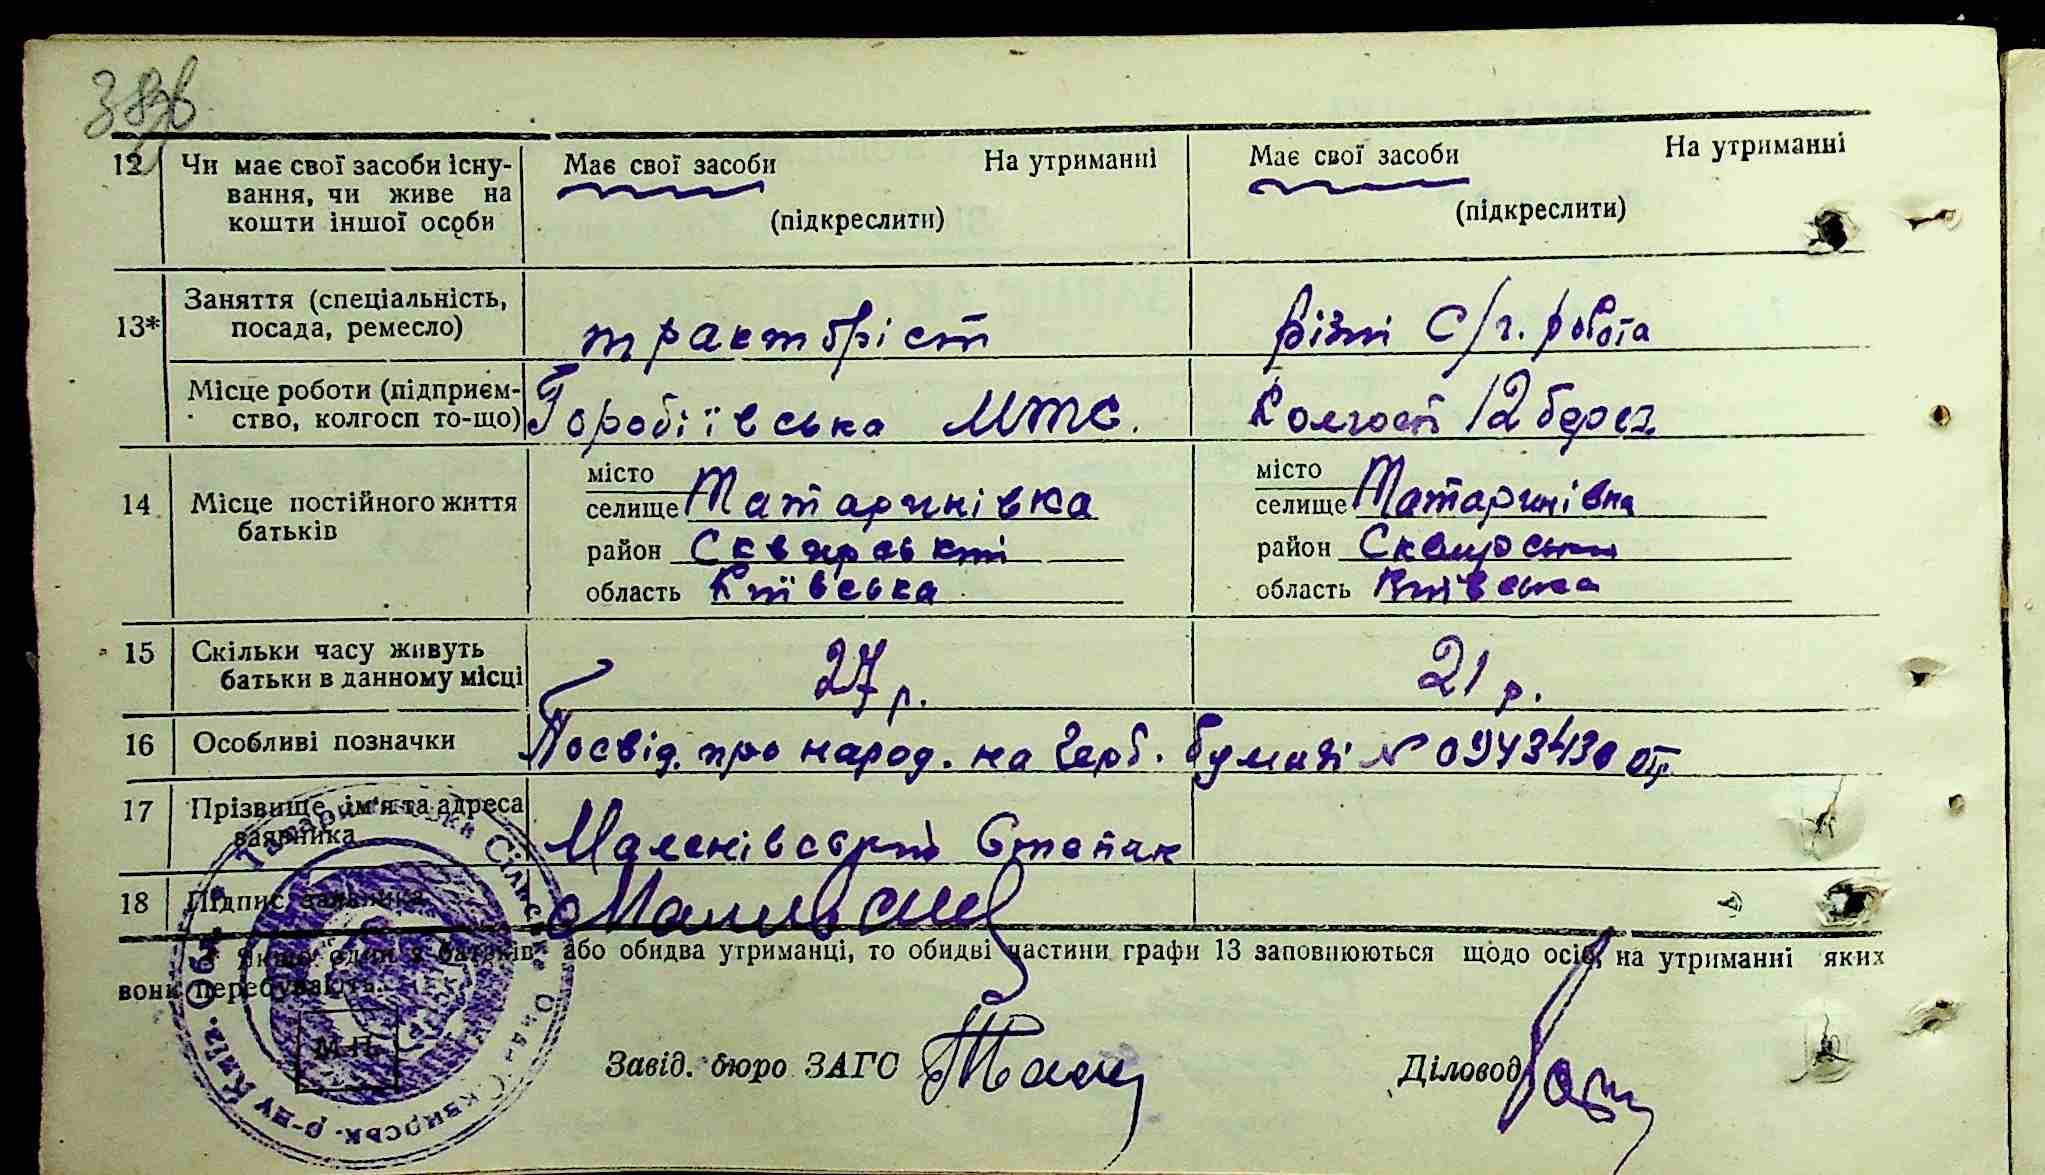 12 Чи має свої засоби існу-
вання, чи живе на
кошти іншої особи
Має свої засоби На утриманні
(підкреслити)
Має свої засоби На утриманні
(підкреслити)
13* Заняття (спеціальність,
посада, ремесло)
тракторіст
різні С/г. робота
Місце роботи (підприєм-
ство, колгосп то-що)
Горобіївська МТС.
Колгосп 12 берез.
14 Місце постійного життя
батьків
місто
селище Татаринівка
район Сквирськи
область Київська
місто
селище Татаринівка
район Сквирськи
область Київська
15 Скільки часу живуть
батьки в данному місці
27 р.
21 р.
16 Особливі позначки
Посвід. про народ. на герб. бумазі №
17 Прізвище, ім'я та адреса
заявника
Маленівський Степан
18 Підпис заявника
* Якщо один з батьків або обидва утриманці, то обидві частини графи 13 заповнюються щодо осіб, на утриманні яких
вони перебувають.
М.П.
Завід. бюро ЗАГС
Діловод